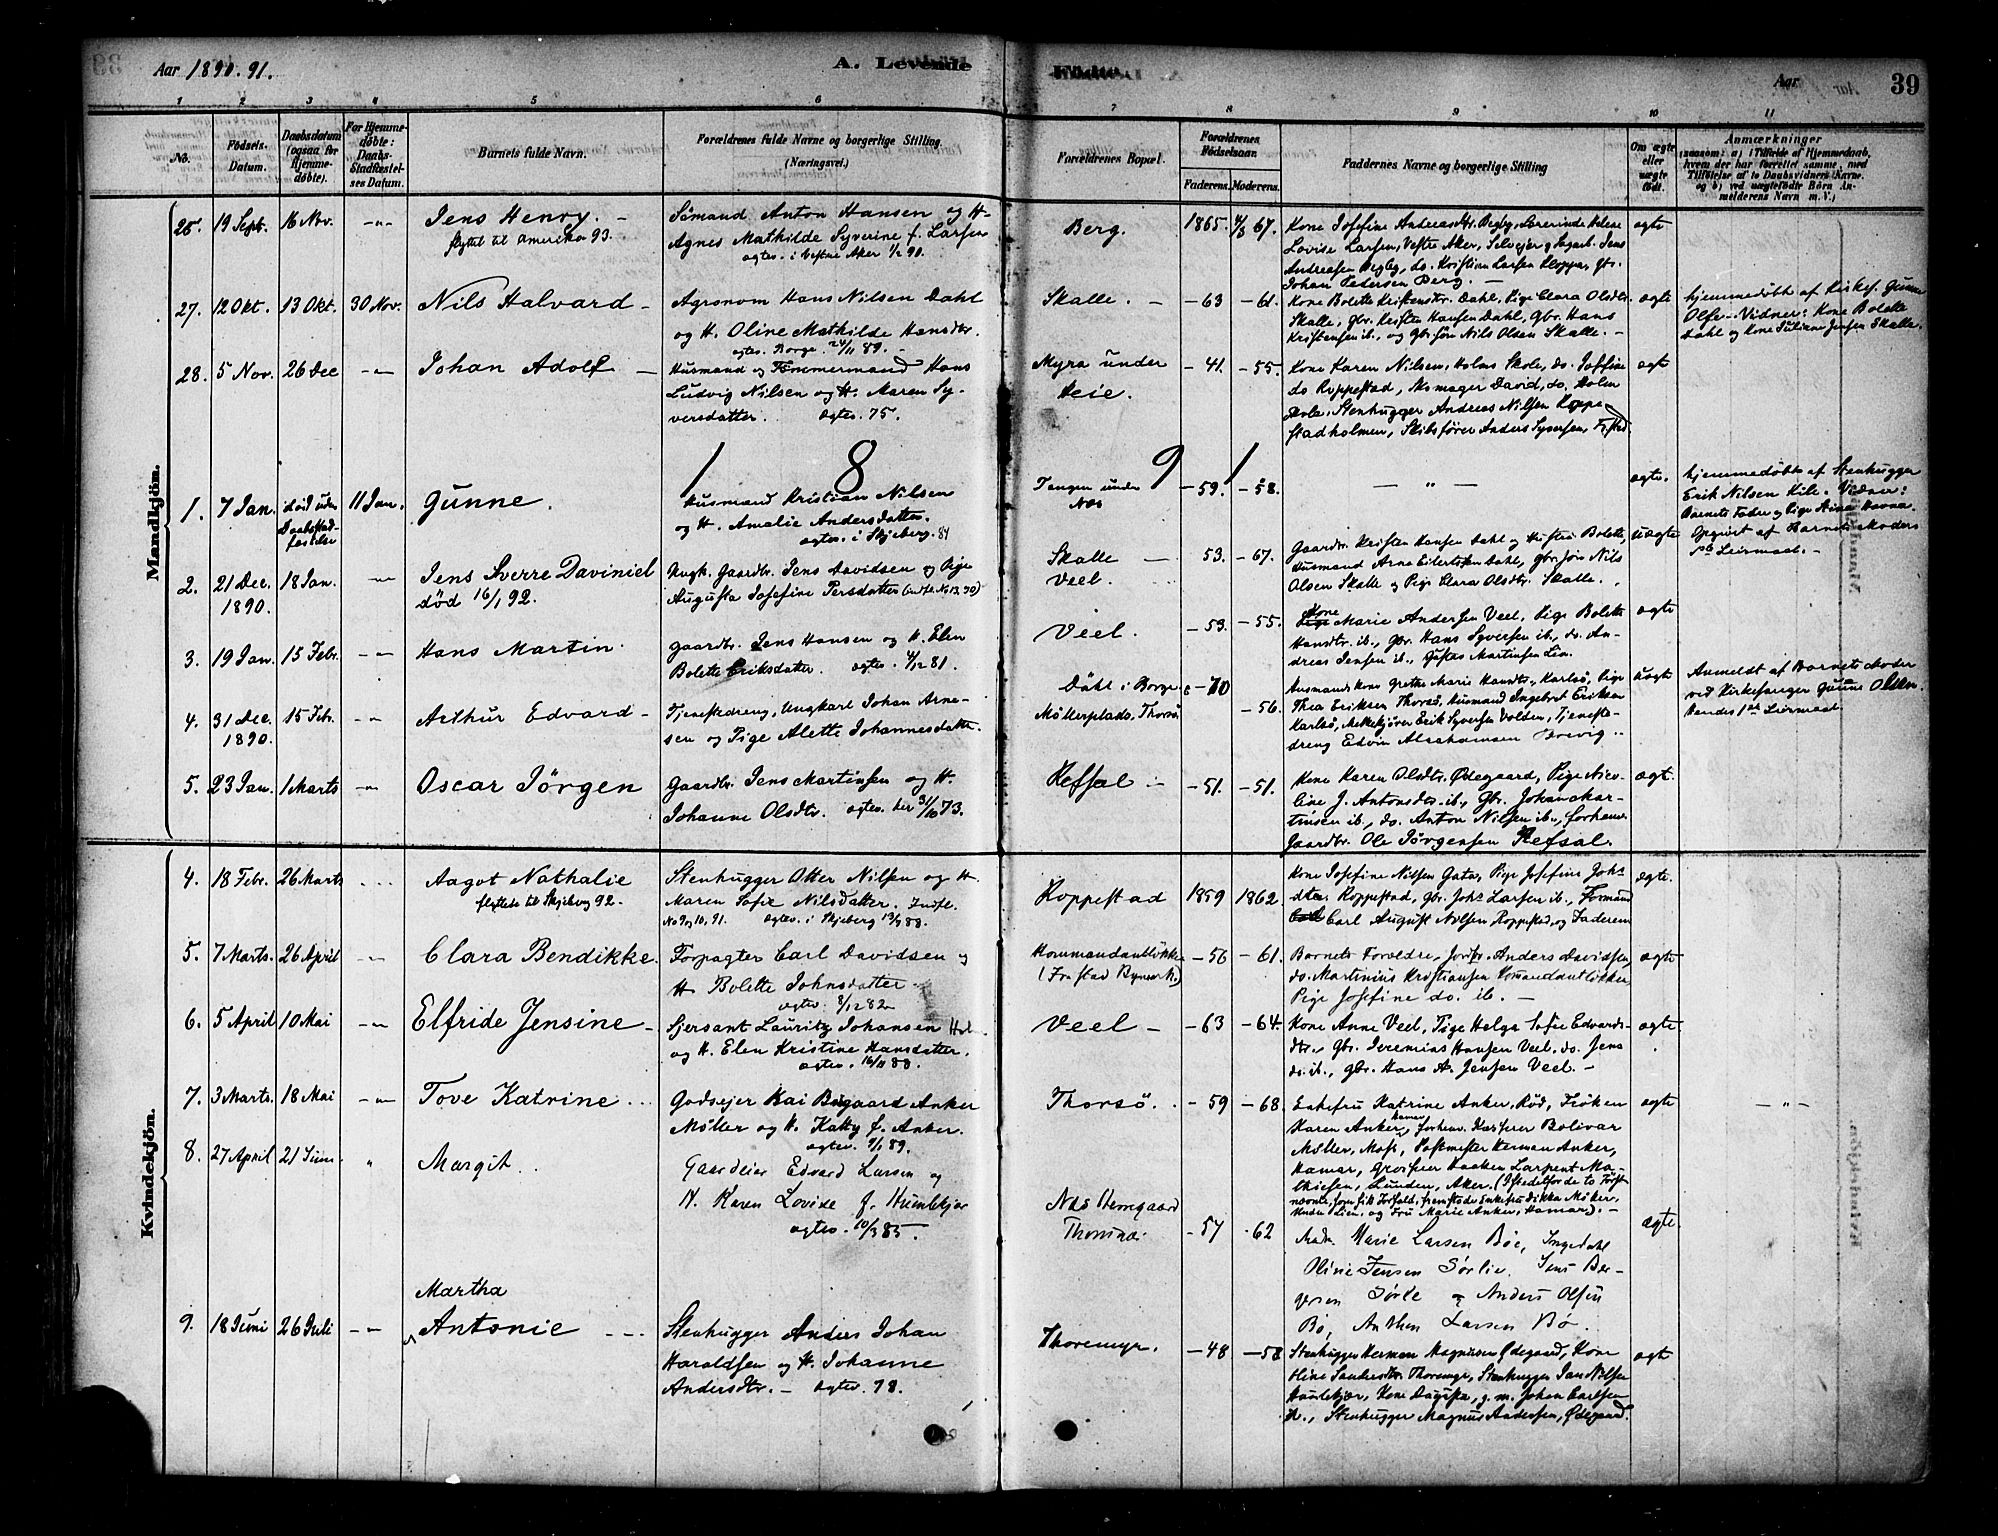 Aar 1890. 91.
A. Levende
Fødte
Aar
39
1 2 3 4 5 6 7 8 9 10 11
No.
Fødsels-
Datum.
Daabsdatum
(ogsaa for
Hjemme-
døbte).
For Hjemme-
døbte:
Daabs-
Stadfæstel-
ses Datum.
Barnets fulde Navn.
Forældrenes fulde Navne og borgerlige Stilling
(Næringsvei.)
Forældrenes Bopæl.
Forældrenes
Fødselsaar.
Faderens. Moderens.
Faddernes Navne og borgerlige Stilling
Om ægte
eller
uægte
født.
Anmærkninger
(saasom: a) i Tilfælde af Hjemmedaab,
hvem der har forrettet samme, med
Tilføielse af to Daabsvidners Navne.
og b) ved uægtefødte Børn An-
melderens Navn m.V.)
Mandkjön.
25. 19 Sept. 16 Nov. -"- Jens Henry. -
flyttet til Amerika 93.
Sømand Anton Hansen og H.
Agnes Mathilde Syverine f. Larsen
ægtev. i Vestre Aker 90.
Berg. 1865. 67.
Kone Josefine Andreasdtr. Begby, Lærerinde
Lovise Larsen, Vestre Aker, Selveier
Andreasen Begby, do. Kristian Larsen
Johan Pedersen Berg. -
ægte
27. 12 Okt. 13 Okt. 30 Nov. Nils Halvard -
Agronom Hans Nilsen Dahl
og H. Oline Mathilde Hansdtr.
ægtev. Borge. 24/11 89. -
Skalle. - - 63 - 61.
Kone Bolette Kristensdtr. Dahl, Pige Clara Olsdtr.
Skalle, gbr. Kristen Hansen Dahl, Gbr. Hans
Kristensen ib., og gbr. søn Nils Olsen Skalle. -
ægte
hjemmedøbt af Kirkes. Gunne
Olsen - Vidner: Kone Bolette
Dahl og Kone Juliane Jensen Skalle.
28. 5 Nov. 26 Dec -"- Johan Adolf -
Husmand og Tømmermand Hans
Ludvig Nilsen og H. Maren Sy-
versdatter. ægtev. 75.
Myra under
Heie.
- 41. - 55.
Kone Karen Nilsen, Holms Skole, do. Josefine
do Koppestad, David, do. Holen
Skole, Stenhugger Andreas Nilsen Koppe
stadholmen, Skibsfører Anders Syversen, Frstad.
ægt
1 8 9 1
1. 7 Jan. død uden
Daabsstad-
festelse
11 Jan. Gunne.
Husmand Kristian Nilsen
og H. Amalie Andersdatter.
ægtev. i Skjeberg. 84
Tangen under
Næs
- 59. - 58.
- " -
ægte.
hjemmedøbt af Stenhugger
Erik Nilsen Kile. Vidner:
Barnets Fader og Pige
2. 21 Dec.
1890.
18 Jan. -"- Jens Sverre Daviniel
død 16/1 92.
Ungk. Gaardbr. Jens Davidsen og Pige
Augusta Josefine Persdatter (indfl. No 13. 90)
Skalle -
Veel.
53. - 67.
Gaardbr. Kristen Hansen Dahl og Bolette,
Husmand Arne Eilertsen Dahl, gbr. søn Nils
Olsen Skalle og Pige Clara Olsdtr. Skalle.
uægte
Opgivet af Barnets Moders
1ste Leiermaal. -
3. 19 Jan. 15 Febr. -"- Hans Martin.
Gaardbr. Jens Hansen og H. Elen
Bolette Eriksdatter. ægtev. 4/12 81.
Veel. - 53. - 55.
Kone
Marie Andersen Veel, Pige Bolette
Hansdtr. ib., Gbr. Hans Syversen ib., do. An-
dreas Jensen ib., Gustav Martinsen Lia.
ægte
4. 31 Dec.
1890.
15 Febr. -"- Arthur Edvard -
Tjenestedreng, Ungkarl Johan Arne-
sen og Pige Alette Johannesdatter.
Dahl i Borge
Møllerplads. Thorsø
- 70
- 56.
Husmandskone Grethe Marie Hansdtr. Karlsø, Pige
Thea Eriksen Thorsø, Husmand Ingebret Eriksen
Karlsø, Melkekjører Erik Syversen Volden, Tjeneste-
dreng Edvin Abrahamsen
uægte
Anmeldt af Barnets Moder
ved Kirkesanger Gunne Olsen.
hendes 1ste Leiermaal.
5. 23 Jan. 1 Marts -"- Oscar Jörgen
Gaardbr. Jens Martinsen og H.
Johanne Olsdtr. ægtev. her 31/10 73.
Refsal - - 51. - 51.
Kone Karen Olsdtr. Ødegaard, Pige Nico-
line J. Antonsdtr. ib., Gbr. Johan Mar-
tinsen ib., do. Anton Nilsen ib., forhenv.
Gaardbr. Ole Jörgensen Refsal.
ægt.
Kvindekjön.
4. 18 Febr. 26 Marts ... Aagot Nathalie
flyttede til Skjeberg 92.
Stenhugger Otter Nilsen og H.
Maren Sofie Nilsdatter. Indfl.
No 9 og 10, 91. ægtev. i Skjeberg 88.
Koppestad 1859 1862
Kone Josefine Nilsen Gata, Pige Josefine Johs
dtr. Koppestad, gbr. Johs Larsen ib., Formand
Carl August Nilsen Koppestad, og Faderen
ægte.
5. 7 Marts. 26 April -"- Clara Bendikke.
Forpagter Carl Davidsen og
H. Bolette Johnsdatter -
ægtev. 8/12 82
Kommandantløkken
(Frstad Bymark.)
- 56 - 61.
Barnets Forældre, Anders Davidsen
do. Martinius Kristiansen Komandantløkken
Pige Josefine do. ib. -
ægte
6. 5 April 10 Mai -"- Elfride Jensine -
Sjersant Lauritz Johansen
og H. Elen Kristine Hansdatter.
ægtev. 16/11 88.
Veel - - 63 - 64.
Kone Anne Veel, Pige Helga Sofie Edvards-
dtr., Gbr. Jeremias Hansen Veel, do. Jens
do. ib., gbr. Hans A. Jensen Veel. -
ægte
7. 3 Marts. 18 Mai -"- Tove Katrine ..
Godseier Kai Bisgaard Anker
Møller og H. Katty f. Anker.
ægtev. 9/1 89.
Thorsö. . - 59 - 68.
Enkefru Katrine Anker, Rød, Frøken
Karen Anker, Hamar, forhenv. Kasserer Bolivar
Møller, Moss, Postmester Herman Anker,
Hamar, Grosserer Haaken Larpent Ma-
thiesen, Linden, Aker. (Istedetfor de to Først
nævnte, som fik Forfald, fremstode Enkefru Dikka Møller,
Lien, og Fru Marie Anker, Hamar). -
ægte
- " -
8. 27 April 21 Juni " Margit ..
Gaardeier Edvard Larsen og
H. Karen Lovise f. Humlekjær
ægtev. 10/3 85.
Nes Herregaard
Thorsnæs.
- 57 - 62
Mad. Marie Larsen Bøe, Ingedahl
Oline Jensen Sørlie. Jens Ber-
gersen Sørlie og Anders Olsen
Bø, Anthon Larsen Bø.
ægte
9. 18 Juni 26 Juli -"- Martha
Antonie - - -
Stenhugger Anders Johan
Haraldsen og H. Johanne
Andersdtr. - ægtev. 78.
Thoremyr. - 48 - 58
Stenhugger Herman Magnusen Ødegaard, Kone
Oline Thoremyr, Stenhugger Jan Nilsen
Humlekjær, Kone Augusta, g. m. Johan Carlsen
ib., Stenhugger Magnus Andersen, Ødegaard.
ægte